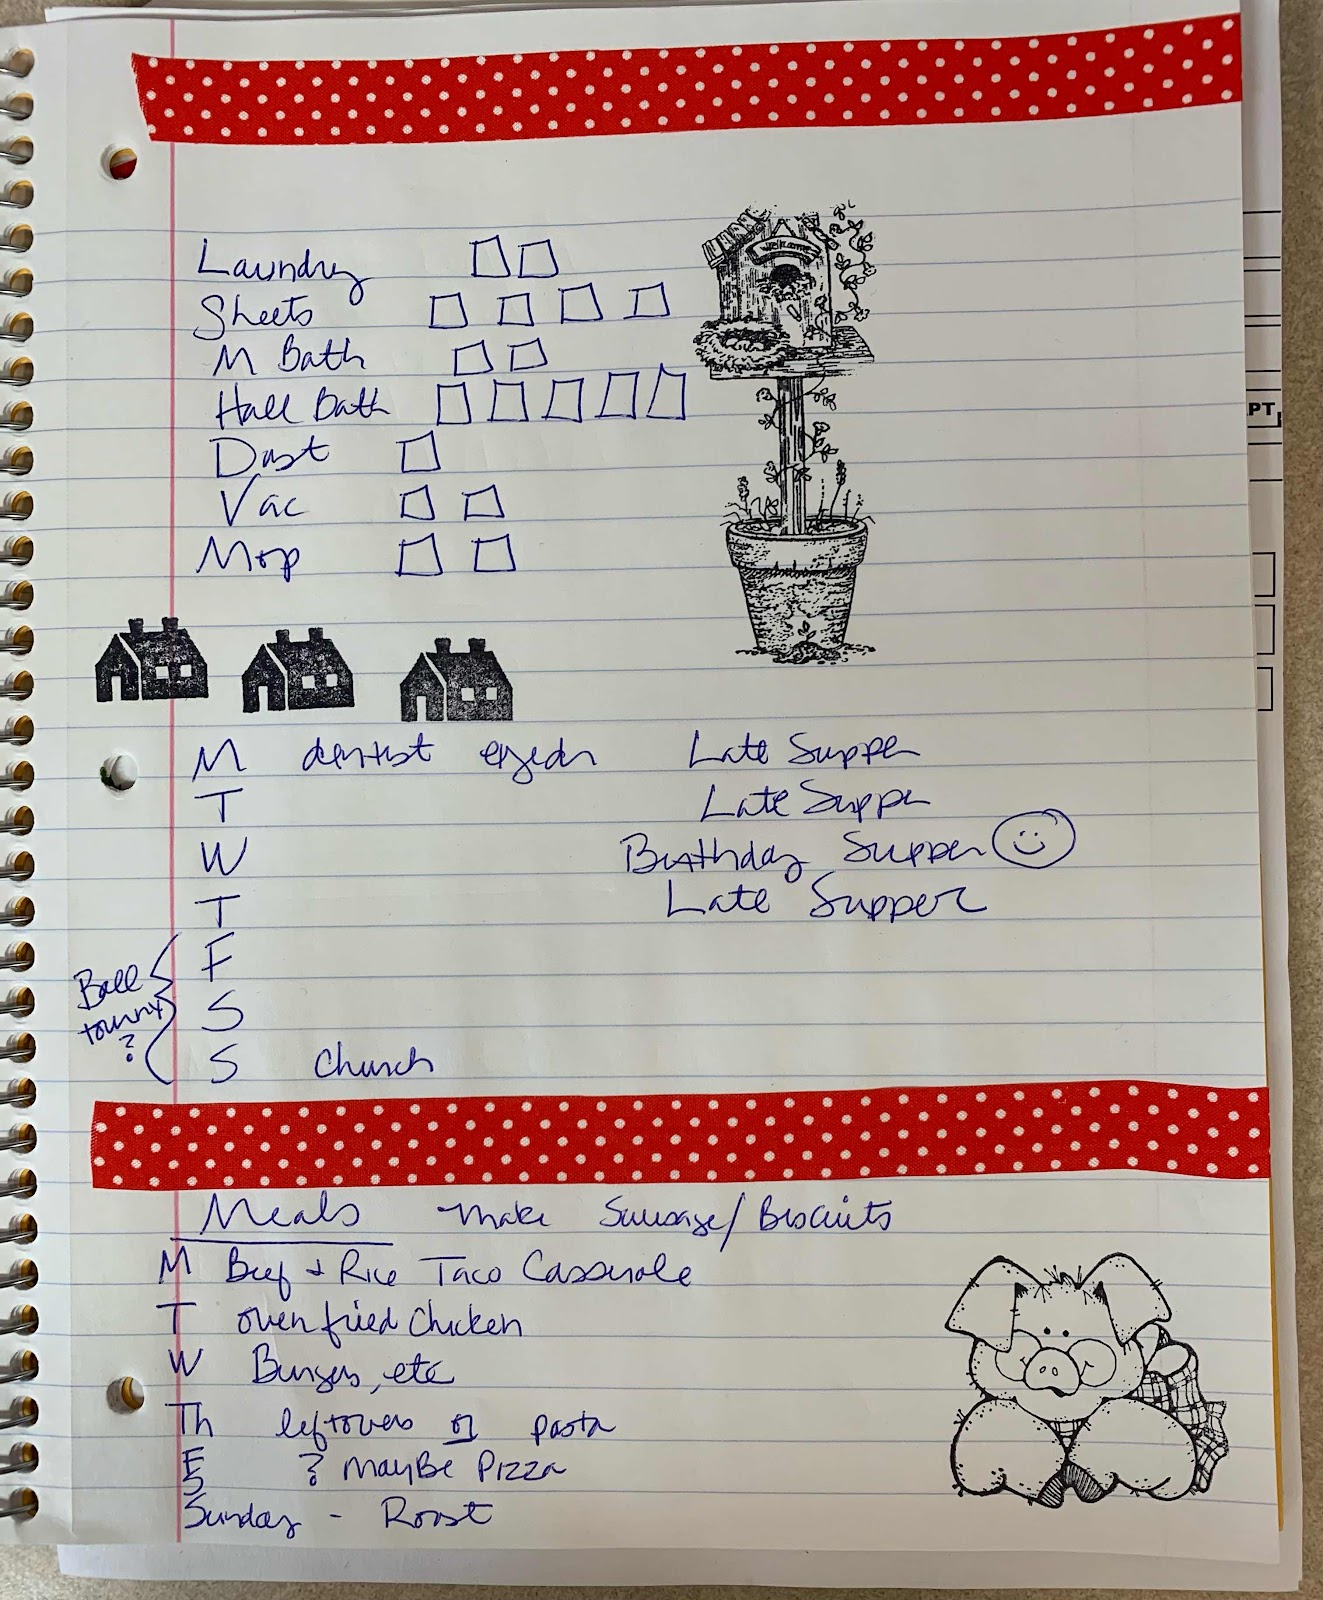 Laundry
Sheets
M Bath
Hall Bath
Dust
Vac
Mop
Welcome
PT
M dentist eyedr Late Supper
T Late Supper
W Birthday Supper
T Late Supper
F
S
S Church
Ball
tourny
?
Meals make Sausage/Biscuits
M Beef + Rice Taco Casserole
T oven fried Chicken
W Burgers, etc
Th leftovers or pasta
F ? Maybe Pizza
S
Sunday - Roast